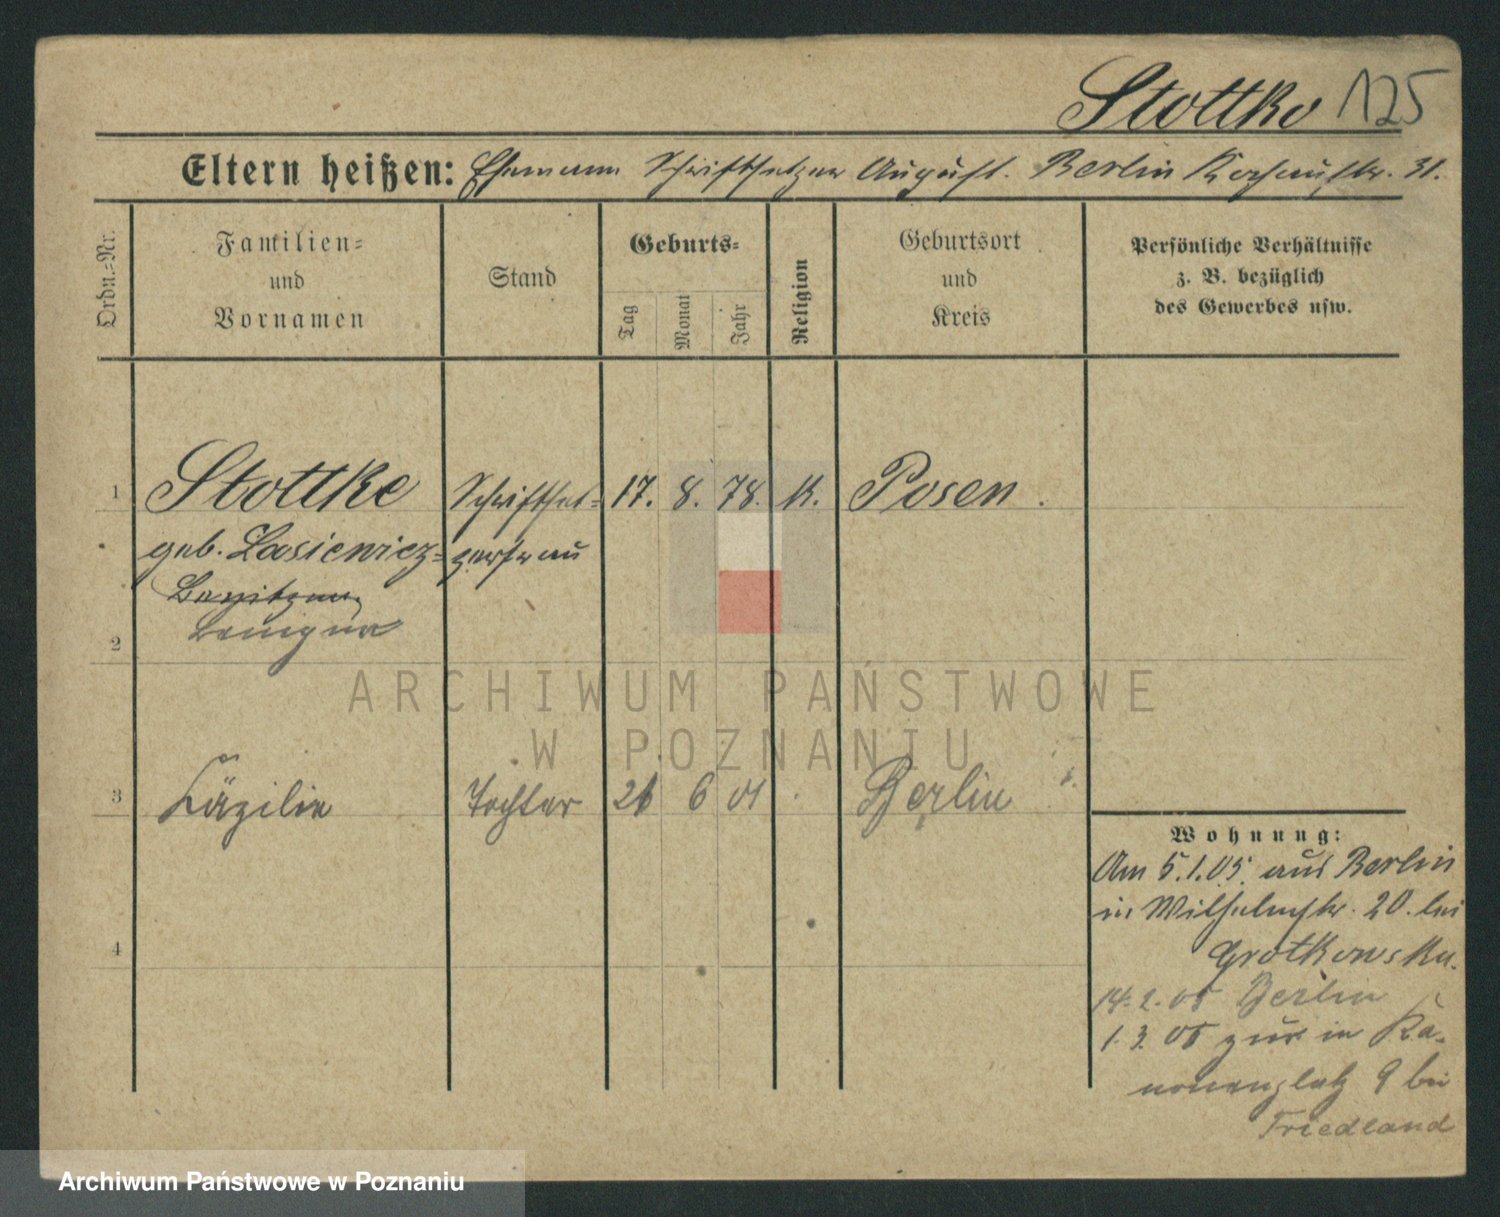 Stottko 125
Eltern heißen: Ehemann Schriftsetzer August. Berlin str. 31.
Ordn.=Nr.
Familien=
und
Vornamen
Stand
Geburts=
Tag
Monat
Jahr
Religion
Geburtsort
und
Kreis
Persönliche Verhältnisse
z. B. bezüglich
des Gewerbes usw.
1 Stottke Schriftset= 17. 8. 78. K. Posen.
geb. Lasiewicz= zersfrau
2 Benigna
ARCHIWUM PAŃSTWOWE
W POZNANIU
3 Käzilie Tochter 26 6 01 Berlin
Wohnung:
Am 5.1.05. aus Berlin
in Wilhelmstr. 20. bei
4 Grotkowska.
14.2.05 Berlin
1.3.05 zur. in Ka-
nonenplatz 9 bei
Friedland
Archiwum Państwowe w Poznaniu